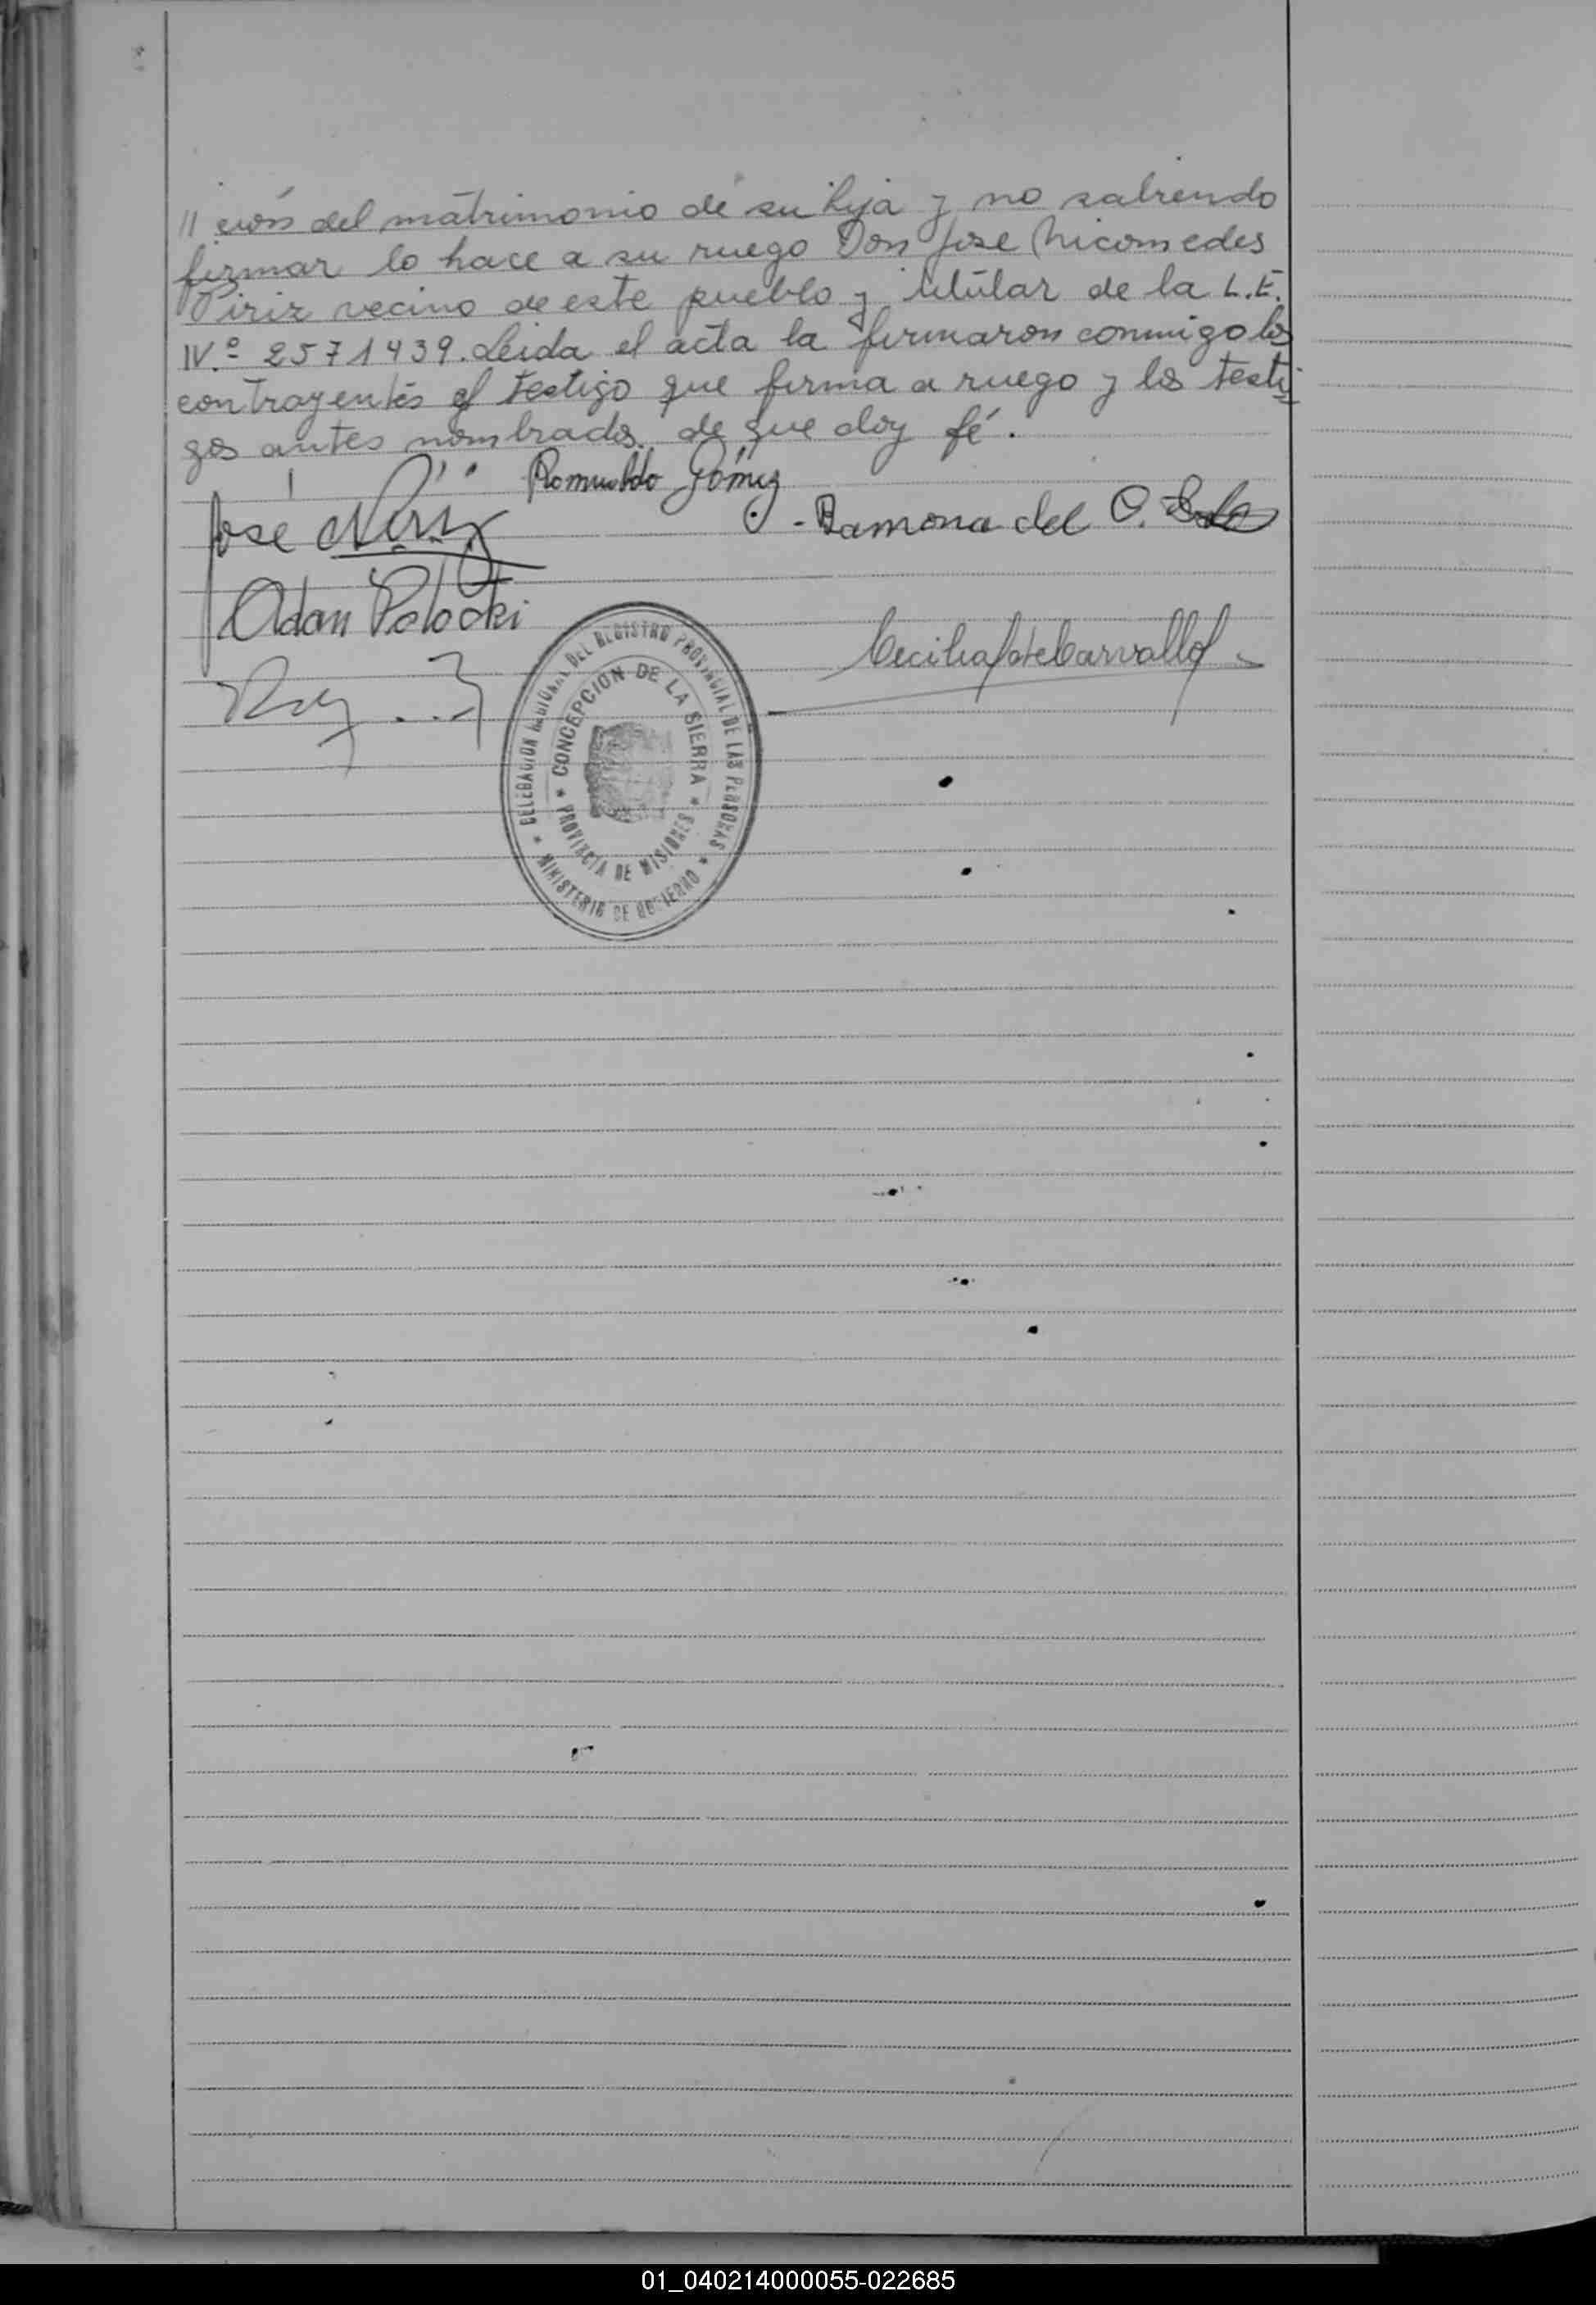 // ción del matrimonio de su hija y no sabiendo
firmar lo hace a su ruego Don José Nicomedes
Piriz vecino de este pueblo y titular de la L.E.
Nº 2571439. Leida el acta la firmaron conmigo los
contrayentes el testigo que firma a ruego y los testi-
gos antes nombrados. de que doy fé.
Romualdo Gómez
José N. Piriz
Ramona del C.
Adan Polocki
Cecilia de Carvallo
DELEGACION REGIONAL DEL REGISTRO PROVINCIAL DE LAS PERSONAS
* CONCEPCION DE LA SIERRA *
PROVINCIA DE MISIONES
* MINISTERIO DE GOBIERNO *
01_040214000055-022685